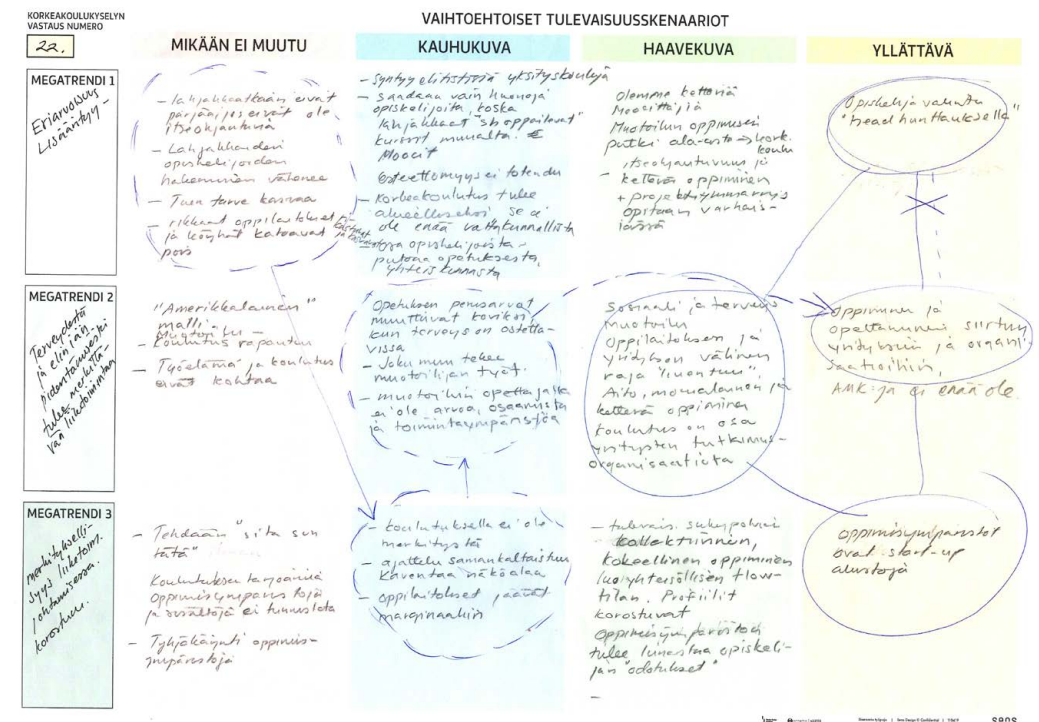 KORKEAKOULUKYSELYN
VASTAUS NUMERO
22.
VAIHTOEHTOISET TULEVAISUUSSKENAARIOT
MIKÄÄN EI MUUTU
KAUHUKUVA
HAAVEKUVA
YLLÄTTÄVÄ
MEGATRENDI 1
Eriarvoisuus
lisääntyy
- lahjakkaatkaan eivät
pärjää jos eivät ole
itseohjautuvia
- Lahjakkaiden
opiskelijoiden
hakeminen vähenee
- Tuen tarve kasvaa
- rikkaat oppilaitokset
ja köyhät katoavat
pois
- Syntyy elitistisiä yksityiskouluja
- Saadaan vain huonoja
opiskelijoita, koska
lahjakkaat "shoppailevat"
kurssit muualta. €
Moocit
Esteettömyys ei toteudu
- Korkeakoulutus tulee
alueelliseksi se ei
ole enää valtakunnallista
opiskelijoista -
putoaa opetuksesta,
yhteiskunnasta
Olemme ketteriä
Moocittajia
Muotoilun oppimisen
putki ala-aste → kork.
koulu
itseohjautuvuus ja
- ketterä oppiminen
+ projektiymmärrys
opitaan varhais-
iässä
Opiskelija valinta
"head hunttauksella"
MEGATRENDI 2
Terveydestä
ja eliniän
pidentämisestä
tulee merkittä-
vää liiketoimintaa
"Amerikkalainen"
malli.
- Koulutus rapautuu
- Työelämä ja koulutus
eivät kohtaa
Opetuksen perusarvot
muuttuvat koviksi,
kun terveys on ostetta-
vissa
- Joku muu tekee
muotoilijan työt.
- muotoilun opettajalla
ei ole arvoa, osaamista
ja toimintaympäristöä
Sosiaali ja terveys
muotoilu
Oppilaitoksen ja
yrityksen välinen
raja "liuentuu",
Aito, monialainen ja
ketterä oppiminen
koulutus on osa
yritysten tutkimus-
organisaatiota
Oppiminen ja
opettaminen siirtyy
yrityksiin ja organi-
saatioihin,
AMK:ja ei enää ole.
MEGATRENDI 3
merkitykselli-
syys liiketoim.
johtamisessa.
korostuu.
- Tehdään "sitä sun
tätä"
Koulutuksen tarjoamia
oppimisympäristöjä
ja sisältöjä ei tunnisteta
- Tyhjäkäynti oppimis-
ympäristöjä
- koulutuksella ei ole
merkitystä
- ajattelu samankaltaistuu
kaventaa näköalaa
- oppilaitokset jäävät
marginaaliin
- tulevais. sukupolvien
kollektiivinen,
kokeellinen oppiminen
luo yhteisöllisen flow-
tilan. Profiilit
korostuvat
oppimisympäristöä
tulee lunastaa opiskeli-
jan "odotukset"
-
oppimisympäristöt
ovat start-up
alustoja